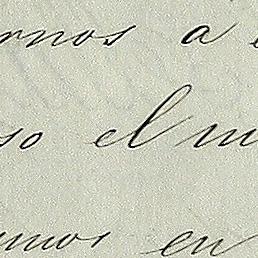 rnos a
so el m
umos en